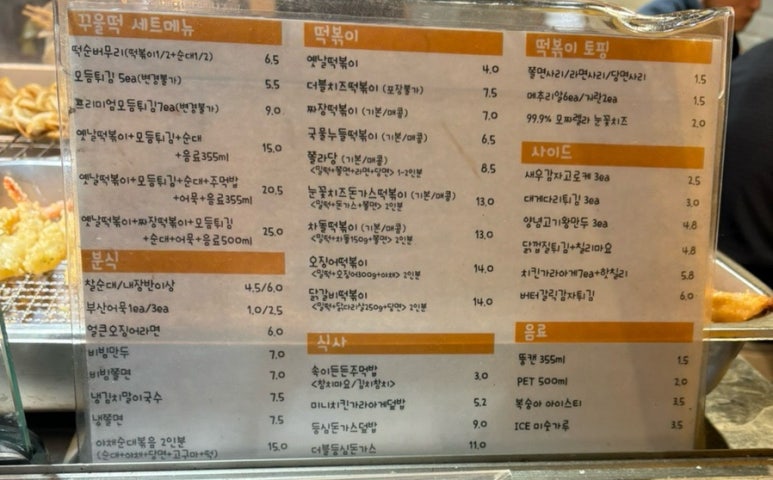 꾸울떡 세트메뉴
떡순버무리(떡볶이1/2+순대1/2) 6.5
모듬튀김 5ea(변경불가) 5.5
프리미엄모듬튀김7ea(변경불가) 9.0
옛날떡볶이+모듬튀김+순대
+음료355ml 15.0
옛날떡볶이+모듬튀김+순대+주먹밥
+어묵+음료355ml 20.5
옛날떡볶이+짜장떡볶이+모듬튀김
+순대+어묵+음료500ml 25.0
분식
찰순대/내장반이상 4.5/6.0
부산어묵1ea/3ea 1.0/2.5
얼큰오징어라면 6.0
비빔만두 7.0
비빔쫄면 7.0
냉김치말이국수 7.5
냉쫄면 7.5
야채순대볶음 2인분 15.0
(순대+야채+당면+고구마+떡)
떡볶이
옛날떡볶이 4.0
더블치즈떡볶이 (포장불가) 7.5
짜장떡볶이 (기본/매콤) 7.0
국물누들떡볶이 (기본/매콤) 6.5
쫄라당 (기본/매콤) 8.5
<밀떡+쫄면+라면+당면> 1-2인분
눈꽃치즈돈가스떡볶이 (기본/매콤) 13.0
<밀떡+돈가스+쫄면> 2인분
차돌떡볶이 (기본/매콤) 13.0
<밀떡+차돌150g+쫄면> 2인분
오징어떡볶이 14.0
<밀떡+오징어300g+야채> 2인분
닭갈비떡볶이 14.0
<밀떡+닭다리살250g+당면> 2인분
식사
속이든든주먹밥 3.0
<참치마요/김치참치>
미니치킨가라아게덮밥 5.2
등심돈가스덮밥 9.0
더블등심돈가스 11.0
떡볶이 토핑
쫄면사리/라면사리/당면사리 1.5
메추리알6ea/계란2ea 1.5
99.9% 모짜렐라 눈꽃치즈 2.0
사이드
새우감자고로케 3ea 2.5
대게다리튀김 3ea 3.0
양념고기왕만두 3ea 4.8
닭껍질튀김+칠리마요 4.8
치킨가라아게7ea+핫칠리 5.8
버터갈릭감자튀김 6.0
음료
뚱캔 355ml 1.5
PET 500ml 2.0
복숭아 아이스티 3.5
ICE 미숫가루 3.5